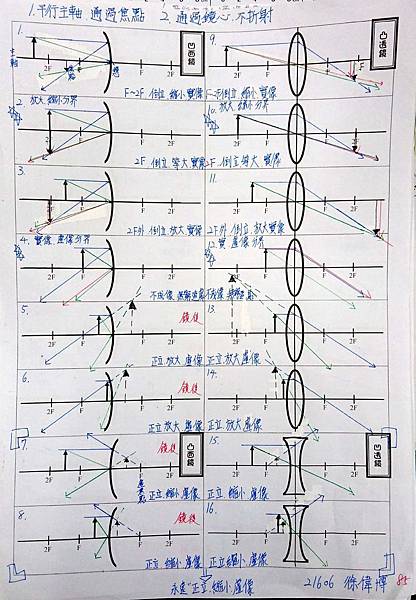 1.平行主軸 通過焦點 2.通過鏡心.不折射
1.
主軸
2F
F
焦點
凹面鏡
F~2F 倒立 縮小 實像
9.
2F
F
F
2F
凸透鏡
F~2F倒立 縮小 實像
2. 放大.縮小分界
2F
F
2F 倒立 等大 實像
10. 放大 縮小分界
2F
F
F
2F
2F 倒立 等大 實像
3.
2F
F
2F外 倒立 放大 實像
11.
2F
F
F
2F
2F外 倒立 放大實像
4. 實像.虛像分界
2F
F
不成像
12. 實 虛像分界
2F
F
F
2F
不成像
5.
2F
F
鏡後
正立 放大 虛像
13.
2F
F
F
2F
正立 放大 虛像
6.
2F
F
鏡後
正立 放大 虛像
14.
2F
F
F
2F
正立 放大 虛像
7.
2F
F
凸面鏡
鏡後
正立 縮小 虛像
15.
2F
F
F
2F
凹透鏡
正立 縮小 虛像
8.
2F
F
鏡後
正立 縮小 虛像
16.
2F
F
F
2F
正立縮小 虛像
永遠"正立.縮小.虛像
21606 徐偉博